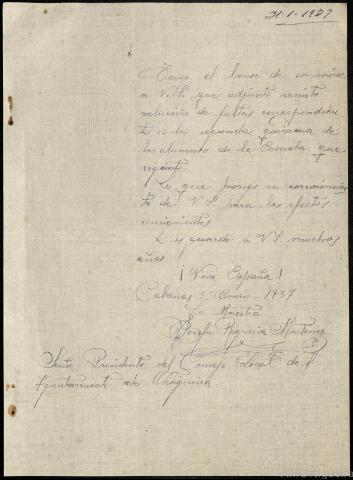 31-1-1937
Tengo el honor de comunicar
a V.S. que adjunto remito
relación de faltas correspondien
tes a la segunda quincena de
los alumnos de la Escuela que
regento.
Lo que pongo en conocimien
to de V.S. para los efectos
consiguientes
D. es guarde a V.S. muchos
años
¡Viva España!
Cabanas Enero - 1937
La Maestra
Josefa Martínez
Señor Presidente del Consejo Local del
Ayuntamiento de Ortigueira